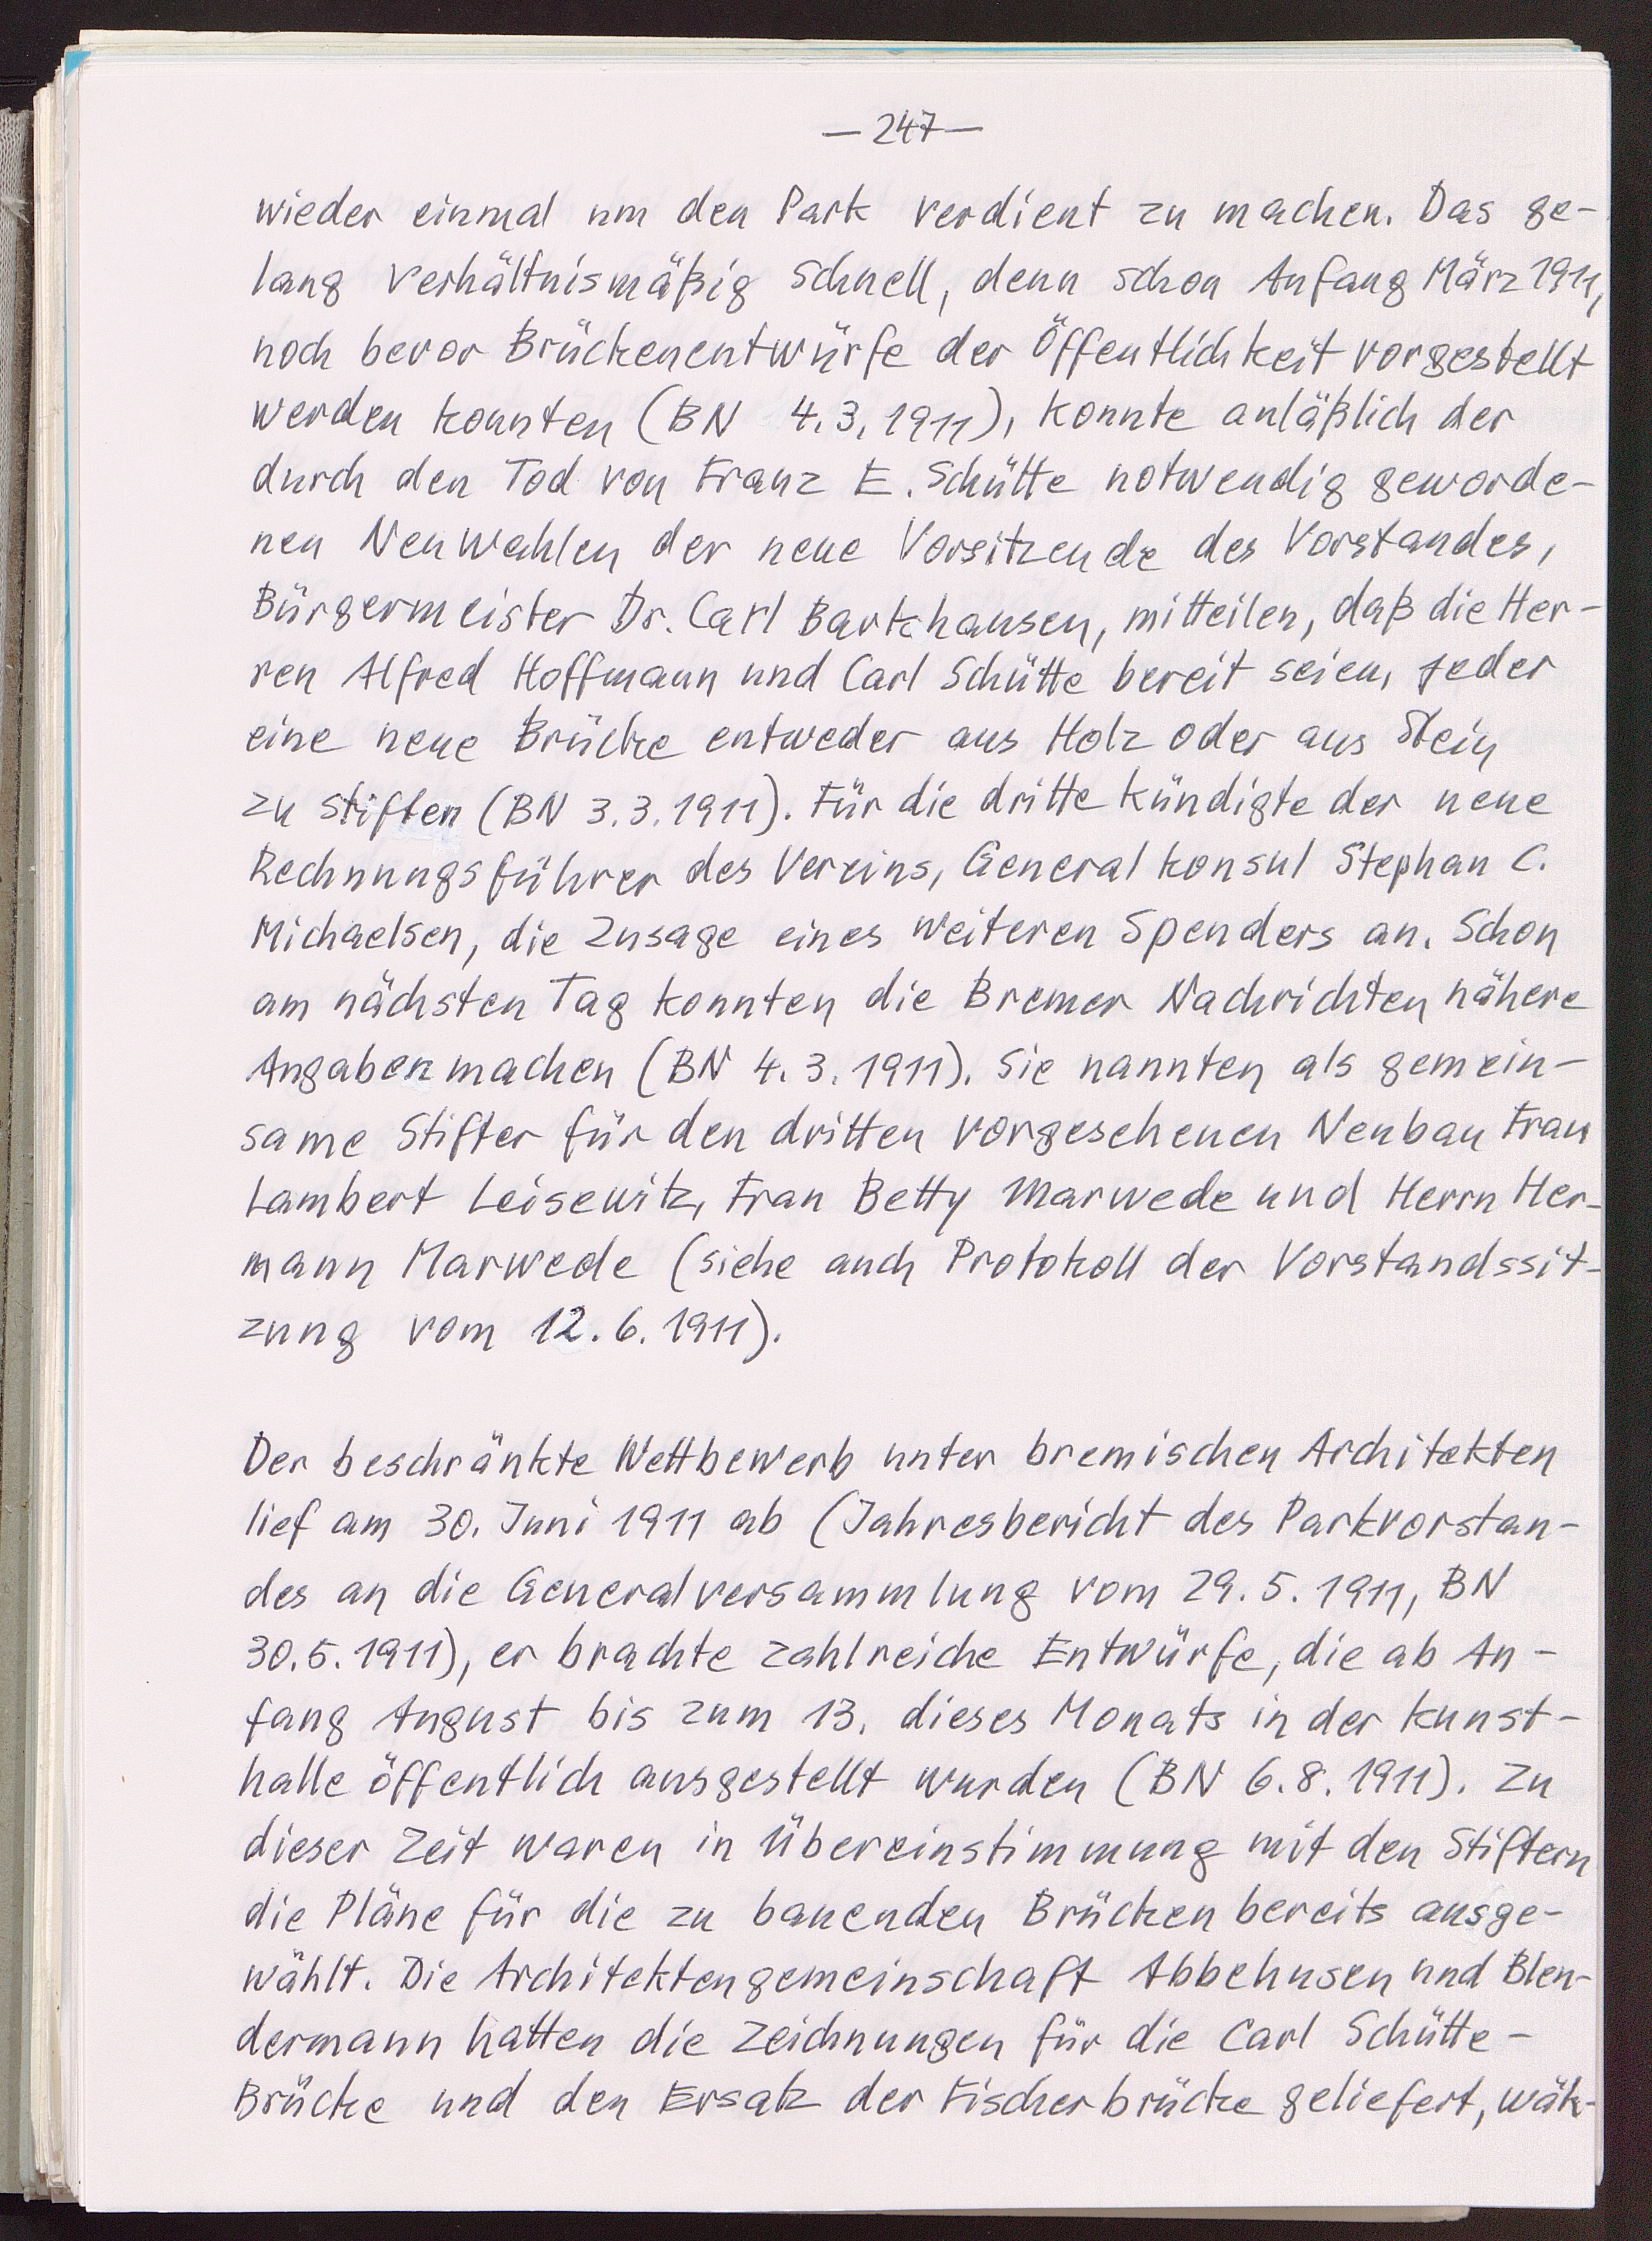 — 247 —
wieder einmal um den Park verdient zu machen. Das ge-
lang verhältnismäßig schnell, denn schon Anfang März 1911,
noch bevor Brückenentwürfe der Öffentlichkeit vorgestellt
werden konnten (BN 4.3.1911), konnte anläßlich der
durch den Tod von Franz E. Schütte notwendig geworde-
nen Neuwahlen der neue Vorsitzende des Vorstandes,
Bürgermeister Dr. Carl Barkhausen, mitteilen, daß die Her-
ren Alfred Hoffmann und Carl Schütte bereit seien, jeder
eine neue Brücke entweder aus Holz oder aus Stein
zu stiften (BN 3.3.1911). Für die dritte kündigte der neue
Rechnungsführer des Vereins, Generalkonsul Stephan C.
Michaelsen, die Zusage eines weiteren Spenders an. Schon
am nächsten Tag konnten die Bremer Nachrichten nähere
Angaben machen (BN 4.3.1911). Sie nannten als gemein-
same Stifter für den dritten vorgesehenen Neubau Frau
Lambert Leisewitz, Frau Betty Marwede und Herrn Her-
mann Marwede (siehe auch Protokoll der Vorstandssit-
zung vom 12.6.1911).
Der beschränkte Wettbewerb unter bremischen Architekten
lief am 30. Juni 1911 ab (Jahresbericht des Parkvorstan-
des an die Generalversammlung vom 29.5.1911, BN
30.5.1911), er brachte zahlreiche Entwürfe, die ab An-
fang August bis zum 13. dieses Monats in der Kunst-
halle öffentlich ausgestellt wurden (BN 6.8.1911). Zu
dieser Zeit waren in Übereinstimmung mit den Stiftern
die Pläne für die zu bauenden Brücken bereits ausge-
wählt. Die Architektengemeinschaft Abbehusen und Blen-
dermann hatten die Zeichnungen für die Carl Schütte-
Brücke und den Ersatz der Fischerbrücke geliefert, wäh-